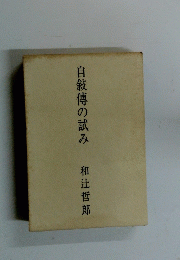 自敍傳の試み
和辻哲郎